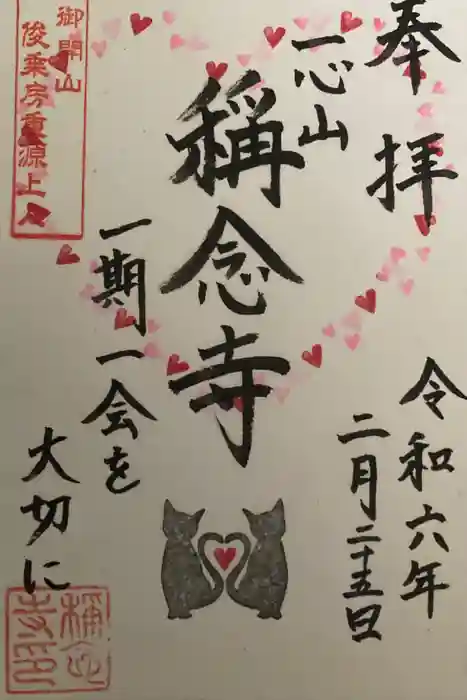 奉拝
一心山
稱念寺
一期一会を
大切に
令和六年
二月二十五日
御開山
俊乗房重源上人
稱念寺印